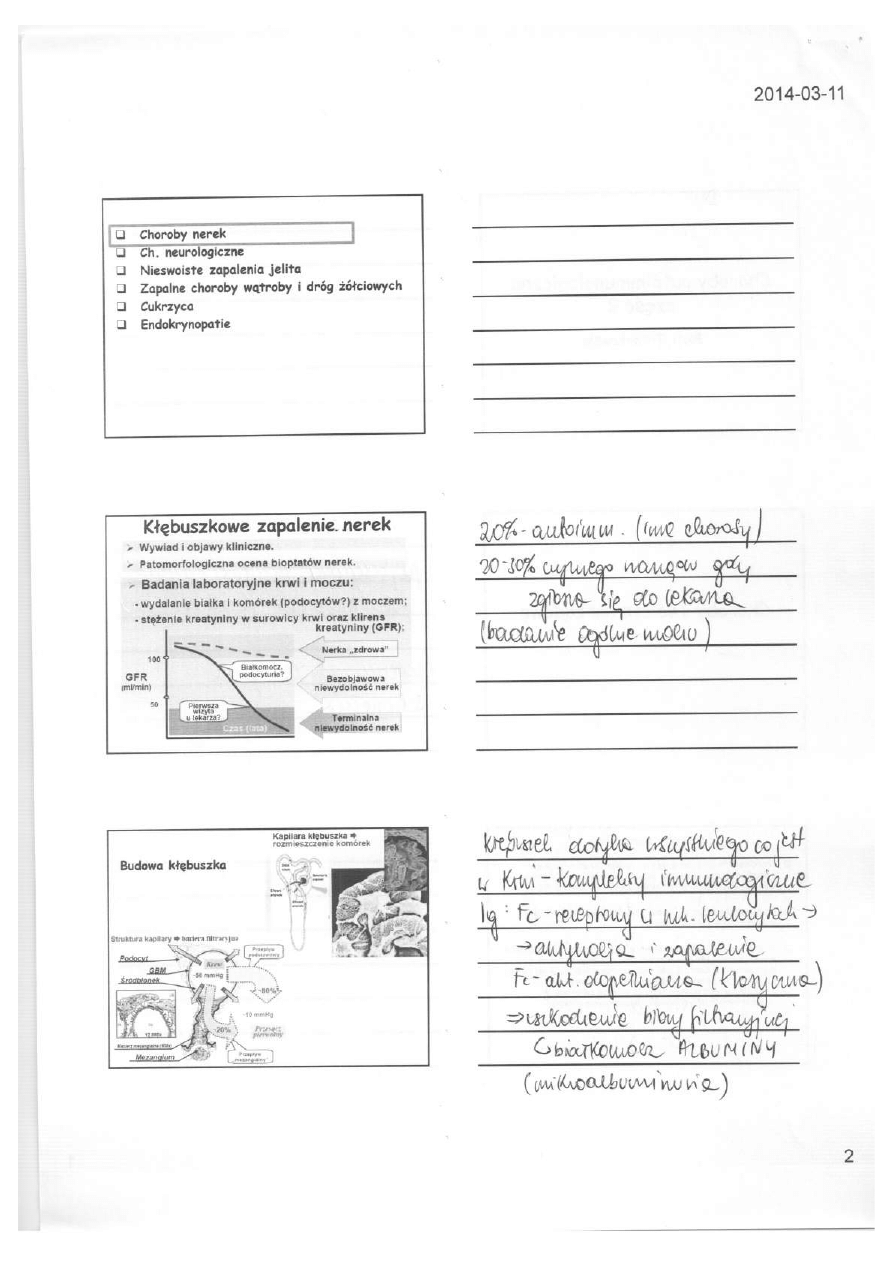 2014-03-11
❑ Choroby nerek
❑ Ch. neurologiczne
❑ Nieswoiste zapalenia jelita
❑ Zapalne choroby wątroby i dróg żółciowych
❑ Cukrzyca
❑ Endokrynopatie
Kłębuszkowe zapalenie nerek
➢ Wywiad i objawy kliniczne.
➢ Patomorfologiczna ocena bioptatów nerek.
➢ Badania laboratoryjne krwi i moczu:
- wydalanie białka i komórek (podocytów?) z moczem;
- stężenie kreatyniny w surowicy krwi oraz klirens
kreatyniny (GFR);
100
GFR
(ml/min)
50
Białkomocz,
podocyturia?
Pierwsza
wizyta
u lekarza?
Czas (lata)
Nerka „zdrowa”
Bezobjawowa
niewydolność nerek
Terminalna
niewydolność nerek
20% - autoimm. (inne choroby)
20-30% czynnego narządu gdy
zgłoszą się do lekarza
(badanie ogólne moczu)
Kapilara kłębuszka ➡
rozmieszczenie komórek
Budowa kłębuszka
Struktura kapilary ➡ bariera filtracyjna
Podocyt
GBM
Śródbłonek
~80%
~20%
Mezangium
kłębuszek dotyka wszystkiego co jest
w krwi - kompleksy immunologiczne
Ig: Fc-receptory w leukocytach →
→ aktywacja i zapalenie
Fc-akt. dopełniacza (klasyczna)
⇒ uszkodzenie błony filtracyjnej
białkomocz ALBUMINY
(mikroalbuminuria)
2